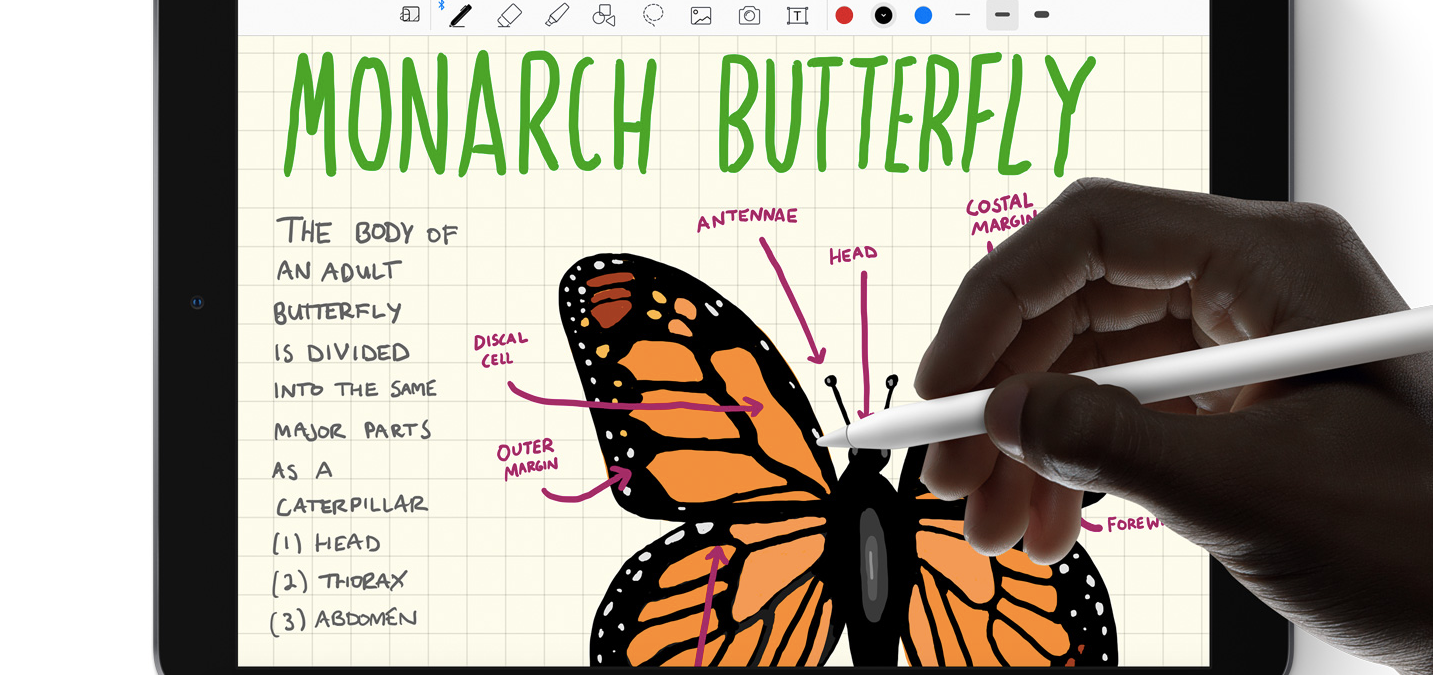 MONARCH BUTTERFLY
THE BODY OF
AN ADULT
BUTTERFLY
IS DIVIDED
INTO THE SAME
MAJOR PARTS
AS A
CATERPILLAR
(1) HEAD
(2) THORAX
(3) ABDOMEN
ANTENNAE
HEAD
COSTAL
MARGIN
DISCAL
CELL
OUTER
MARGIN
T